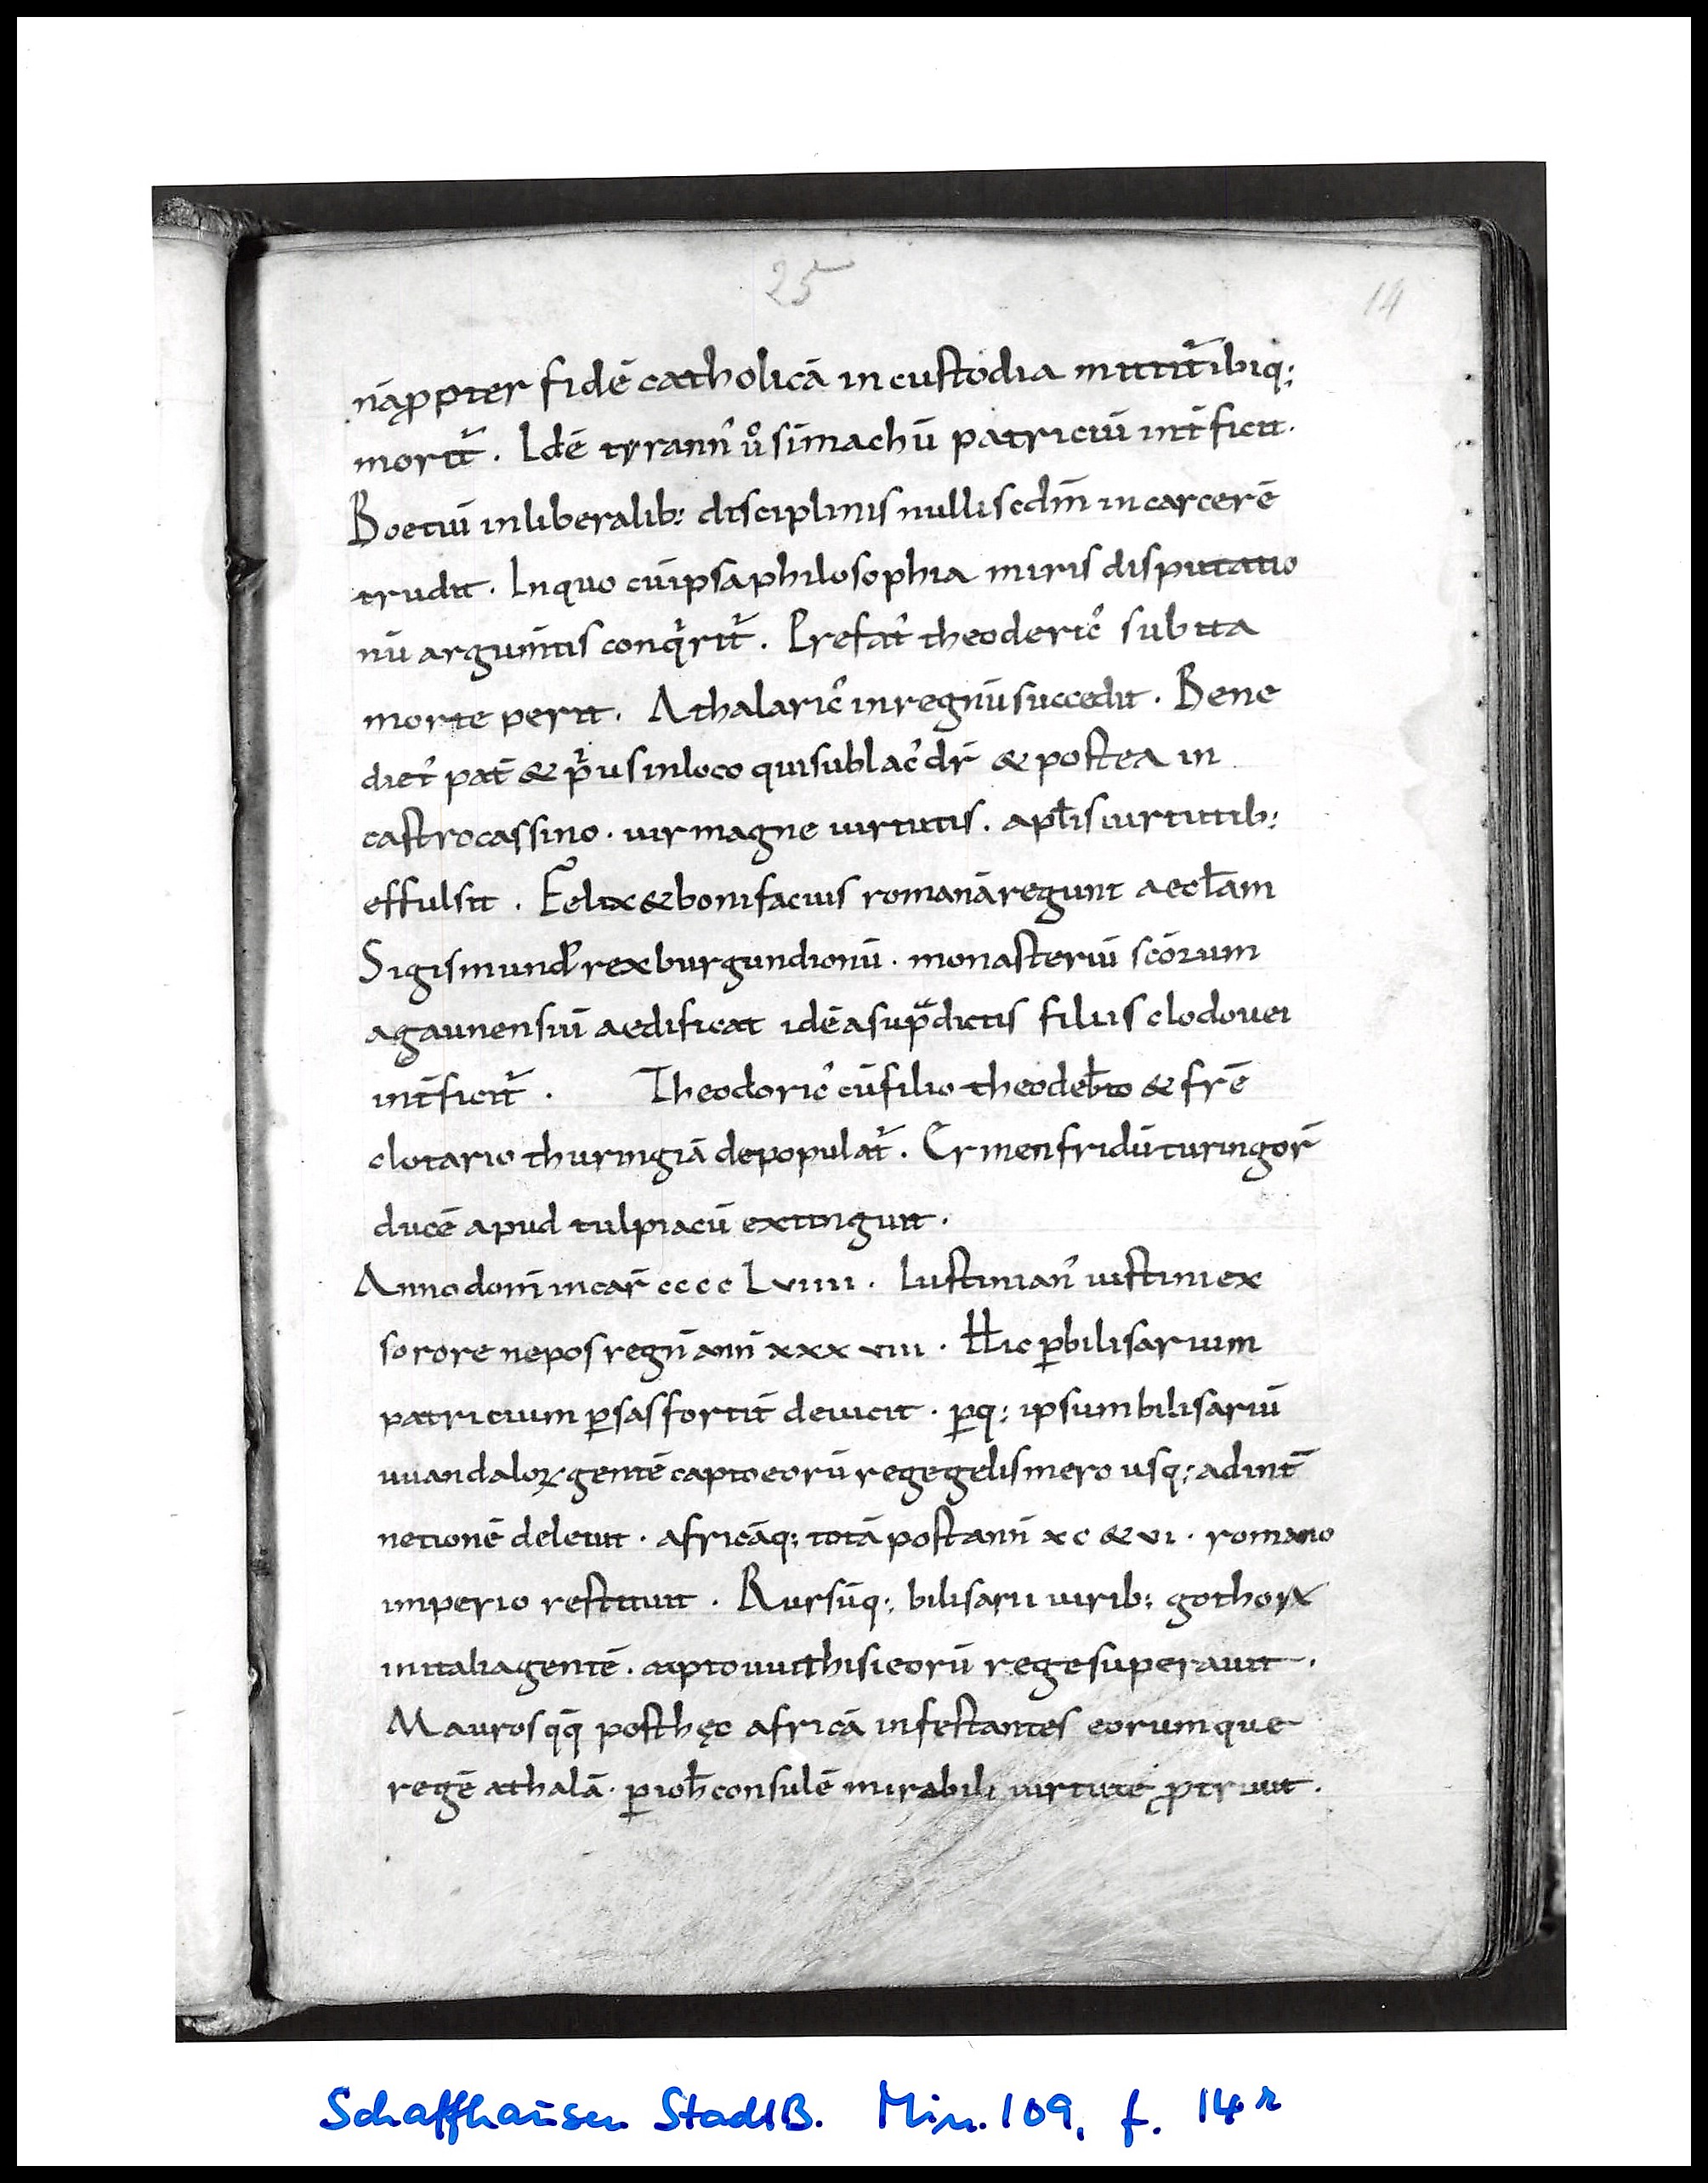 25
14
nā ꝓpter fidē catholicā in custodia mittit᷑ ibiq;
morit᷑. Idē tyrannꝰ uͦ simachū patriciū int̄ficit.
Boetiū in liberalib; disciplinis nulli scdm̄ in carcerē
trudit. In quo cū ipsa philosophia miris disputatio
nū argum̄tis conqͥrit᷑. Prefatꝰ theodericꝰ subita
morte perit. Athalaricꝰ in regnū succedit. Bene
dictꝰ pat̄ & pͥus in loco qui sublacꝰ dr̄ & postea in
castro cassino. uir magne uirtutis. apl̄is uirtutib;
effulsit. Felix & bonifacius romanā regunt aecl̄am
Sigismundꝰ rex burgundionū. monasteriū scōrum
agaunensiū aedificat idē a sup̄dictis filiis clodouei
int̄ficit᷑. Theodoricꝰ cū filio theodeb̄to & fr̄e
clotario thuringiā depopulat᷑. Ermenfridū turingor̄
ducē apud tulpiacū extinguit.
Anno dom̄ incar̄ cccc Lviiii. Iustinianꝰ iustini ex
sorore nepos regn̄ ann̄ xxxviii. Hic ꝑ bilisarium
patricium ꝑsas fortit̄ deuicit. ꝑq; ipsum bilisariū
uuandaloꝝ gentē capto eorū rege gelismero usq; ad int̄
netionē deleuit. africāq; totā post ann̄ xc & vi. romano
imperio restituit. Rursūq; bilisarii uirib; gothoꝝ
in italia gentē. capto uuithisi eorū rege superauit.
Mauros qq̄ post hęc africā infestantes eorumque
regē athalā. ꝑ ioh̄ consulē mirabili uirtute ꝓtriuit.
Schaffhausen StadtB. Min. 109, f. 14r